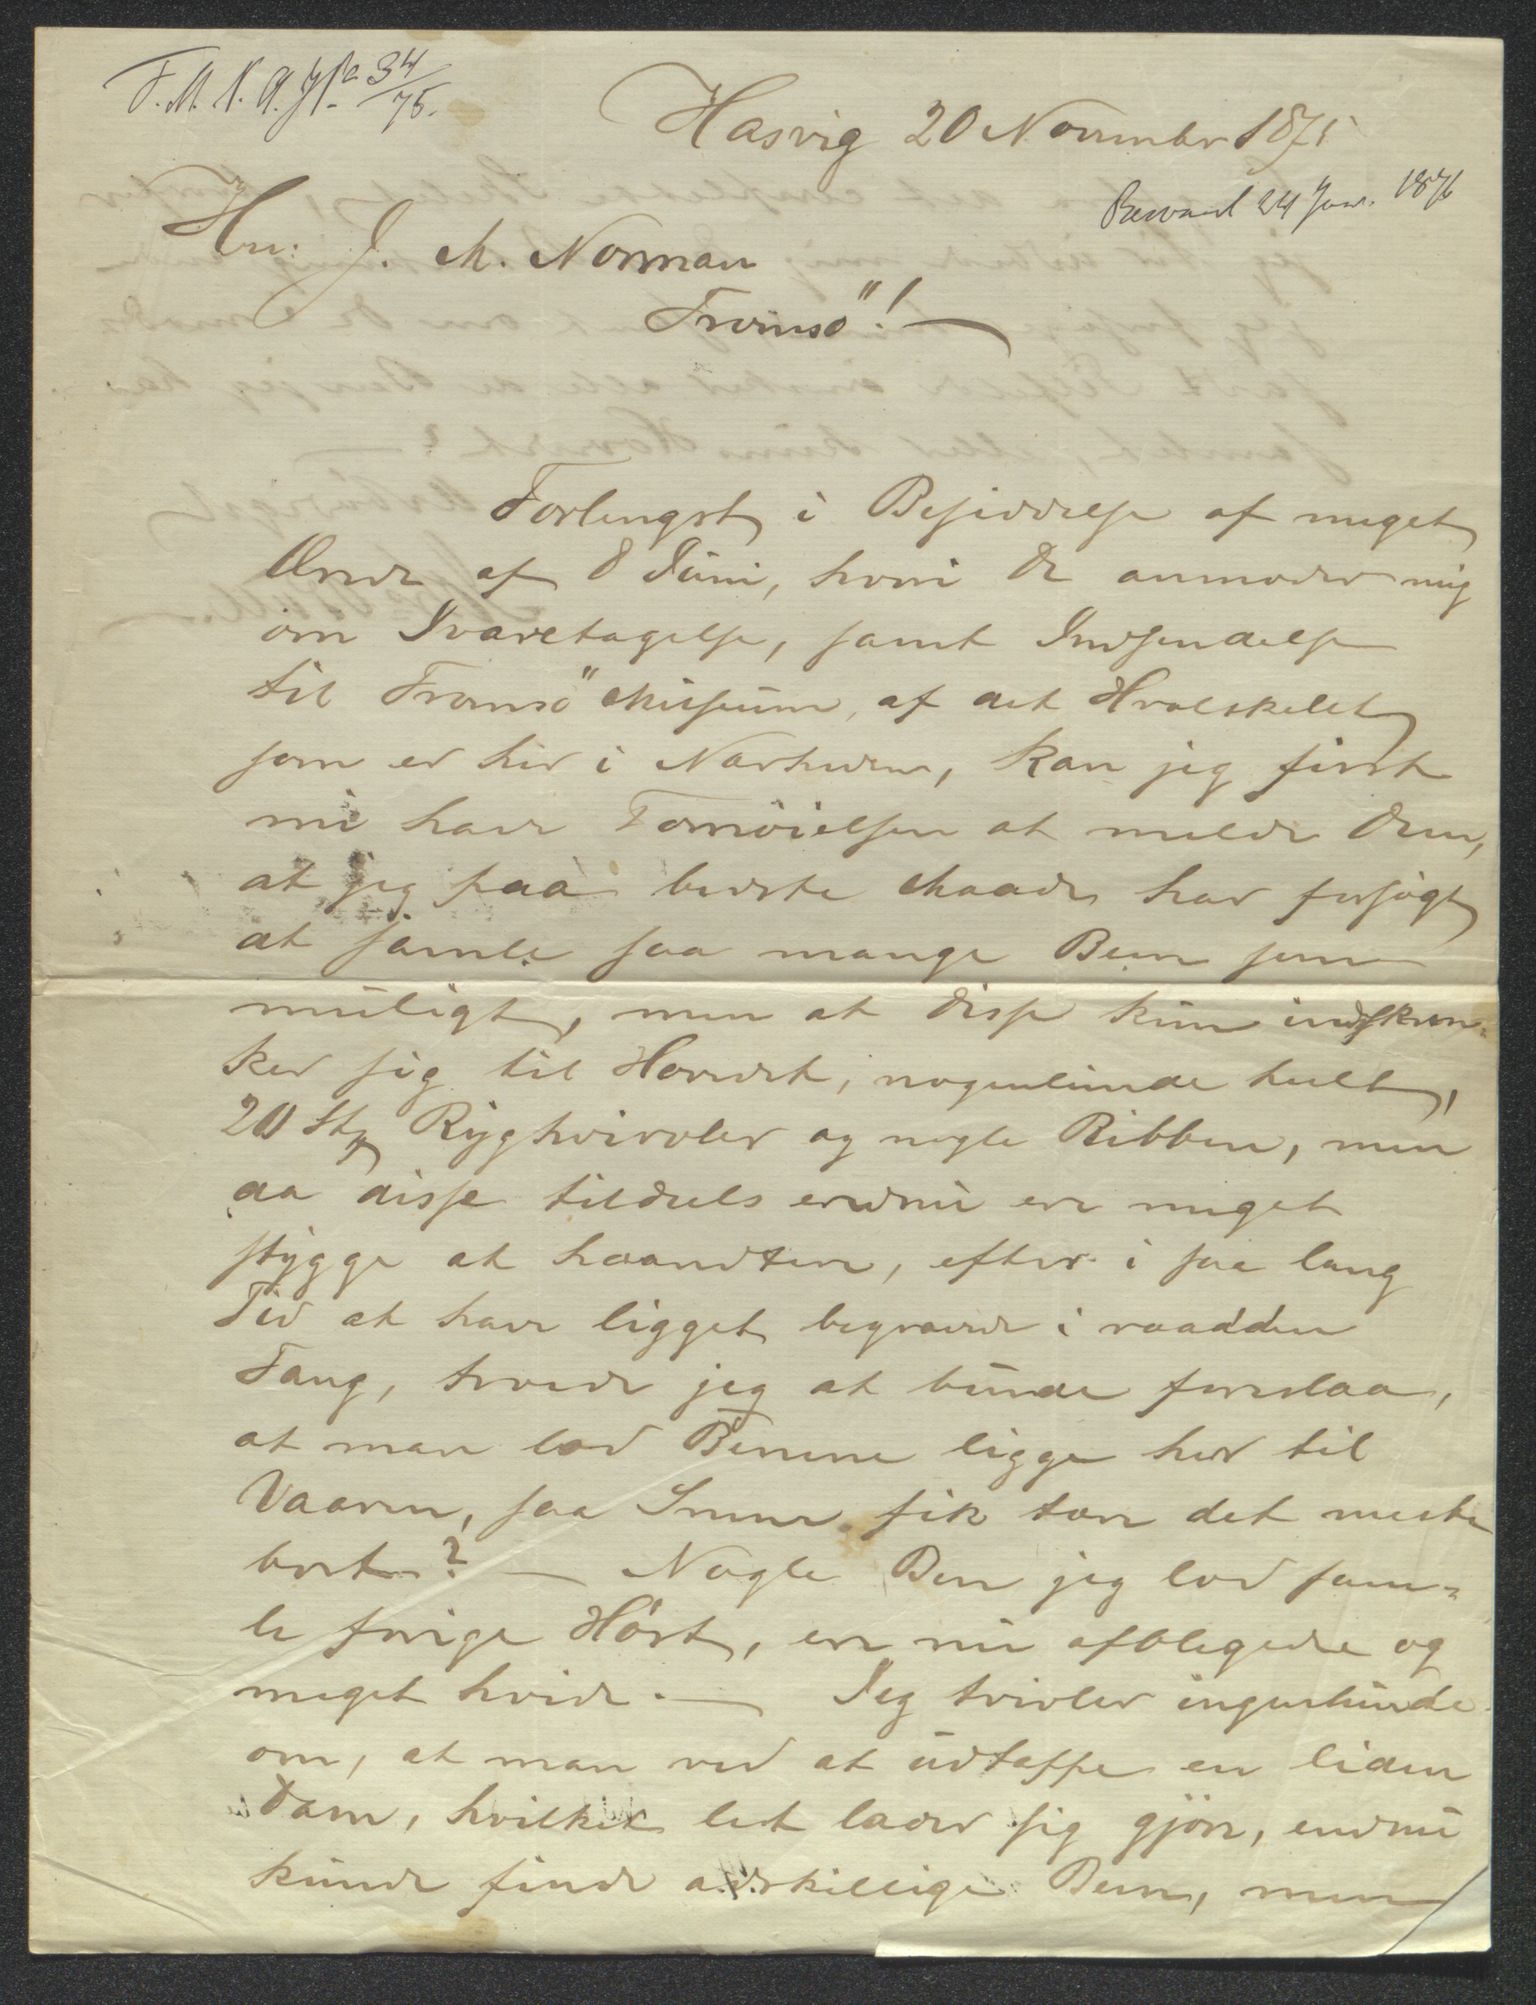 T. M. N. A. No 34/75.
Hasvig 20 November 1875
Besvaret 24 Jan. 1876
Hrr: J. M. Norman
Tromsö"!—
Forlengst i Besiddelse af meget
Ærede af 8 Juni, hvori De anmoder mig
om Ivaretagelse, samt Indsendelse
til Tromsö Museum, af det Hvalskelet
som er her i Nærheden, kan jeg först
nu have Fornöielsen at melde Dem,
at jeg paa bedste Maade har forsögt
at samle saa mange Been som
muligt, men at disse kun indskræn-
ker sig til Hovedet, nogenlunde heelt,
20 Stk Ryghvirvler og nogle Ribben, men
da disse tildeels endnu ere meget
stygge at haandtere, efter i saa lang
Tid at have ligget begravede i raadden
Tang, troede jeg at burde foreslaa,
at man lod Benene ligge her til
Vaaren, saa Sneen fik tære det meste
bort? — Nogle Been jeg lod sam-
le forrige Höst, ere nu afblegede og
meget hvide. — Jeg tvivler ingenlunde
om, at man ved at udtappe en liden
Dam, hvilket let lader sig gjöre, endnu
kunde finde adskillige Been, men